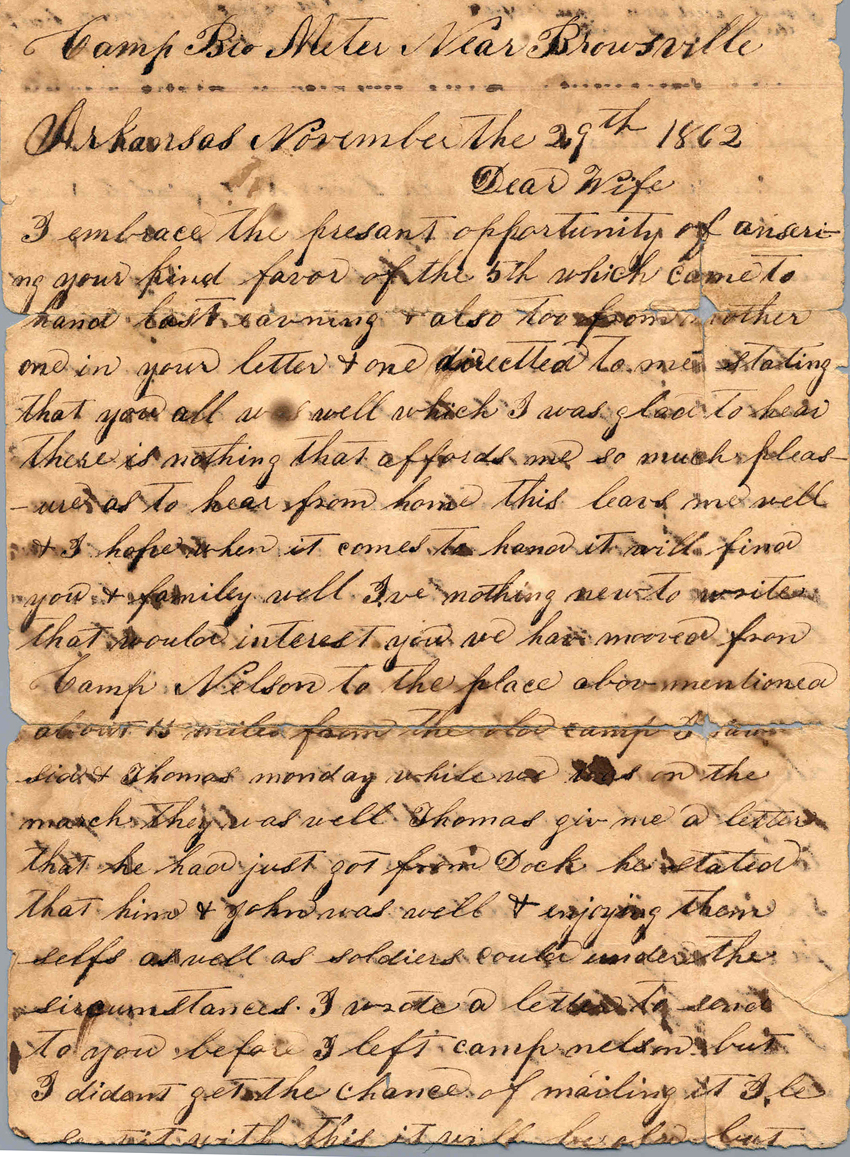 Camp Bio Meter Near Browsville
Arkansas November the 29th 1862
Dear Wife
I embrace the presant opportunity of anseri-
ng your kind favor of the 5th which came to
hand last eavning & also too from mother
one in your letter & one directted to me stating
that you all was well which I was glad to hear
there is nothing that affords me so much pleas-
-ure as to hear from home this leavs me well
& I hope when it comes to hand it will find
you & family well I've nothing new to write
that would interest you we hav mooved from
Camp Nelson to the place abov mentioned
about 15 miles from the old camp I saw
Sid & Thomas monday while we was on the
march they was well Thomas giv me a letter
that he had just got from Dock he stated
that him & John was well & enjoying them
selfs as well as soldiers could under the
sircumstances. I wrote a letter to send
to you before I left camp nelson but
I didant get the chance of mailing it I le
it with this it will be old but